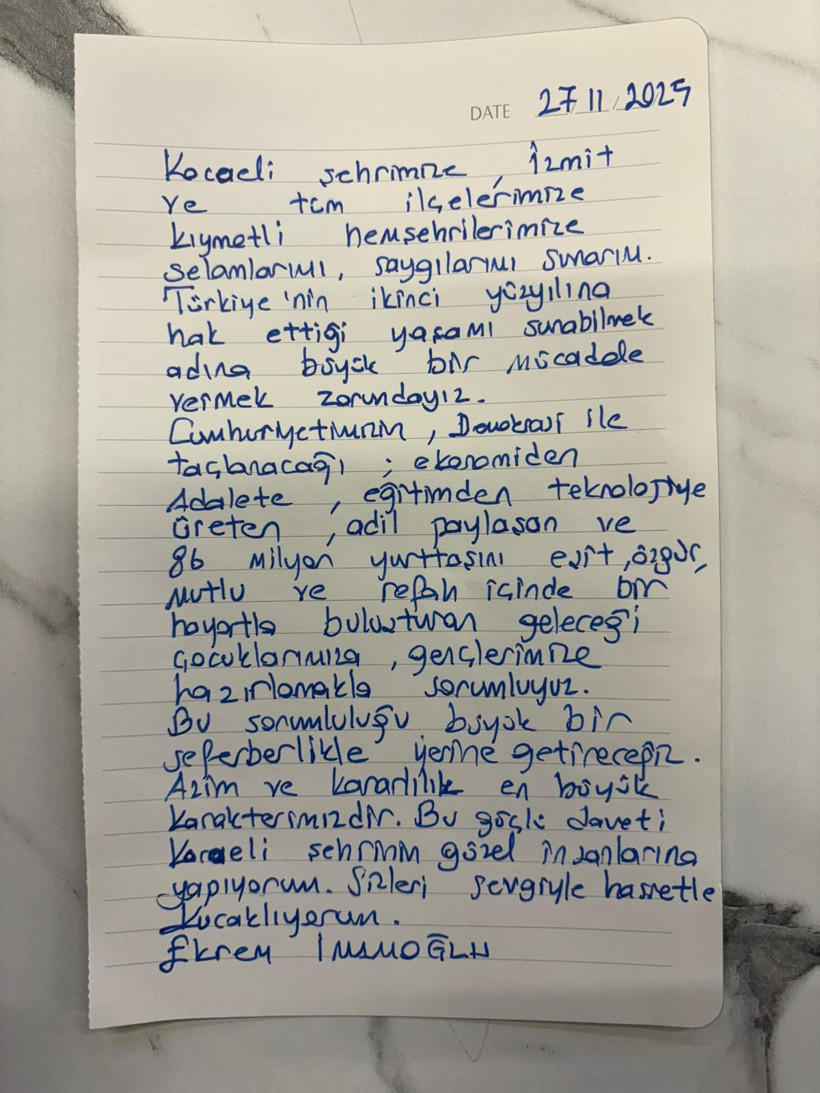 DATE 27/11/2025
Kocaeli şehrimize, İzmit
ve tüm ilçelerimize
kıymetli hemşehrilerimize
selamlarımı, saygılarımı sunarım.
Türkiye'nin ikinci yüzyılına
hak ettiği yaşamı sunabilmek
adına büyük bir mücadele
vermek zorundayız.
Cumhuriyetimizin, Demokrasi ile
taçlanacağı ; ekonomiden
Adalete, eğitimden teknolojiye
üreten, adil paylaşan ve
86 milyon yurttaşını eşit, özgür,
mutlu ve refah içinde bir
hayatla buluşturan geleceği
çocuklarımıza, gençlerimize
hazırlamakla sorumluyuz.
Bu sorumluluğu büyük bir
seferberlikle yerine getireceğiz.
Azim ve kararlılık en büyük
karakterimizdir. Bu güçlü daveti
Kocaeli şehrinin güzel insanlarına
yapıyorum. Sizleri sevgiyle hasretle
kucaklıyorum.
Ekrem İMAMOĞLU